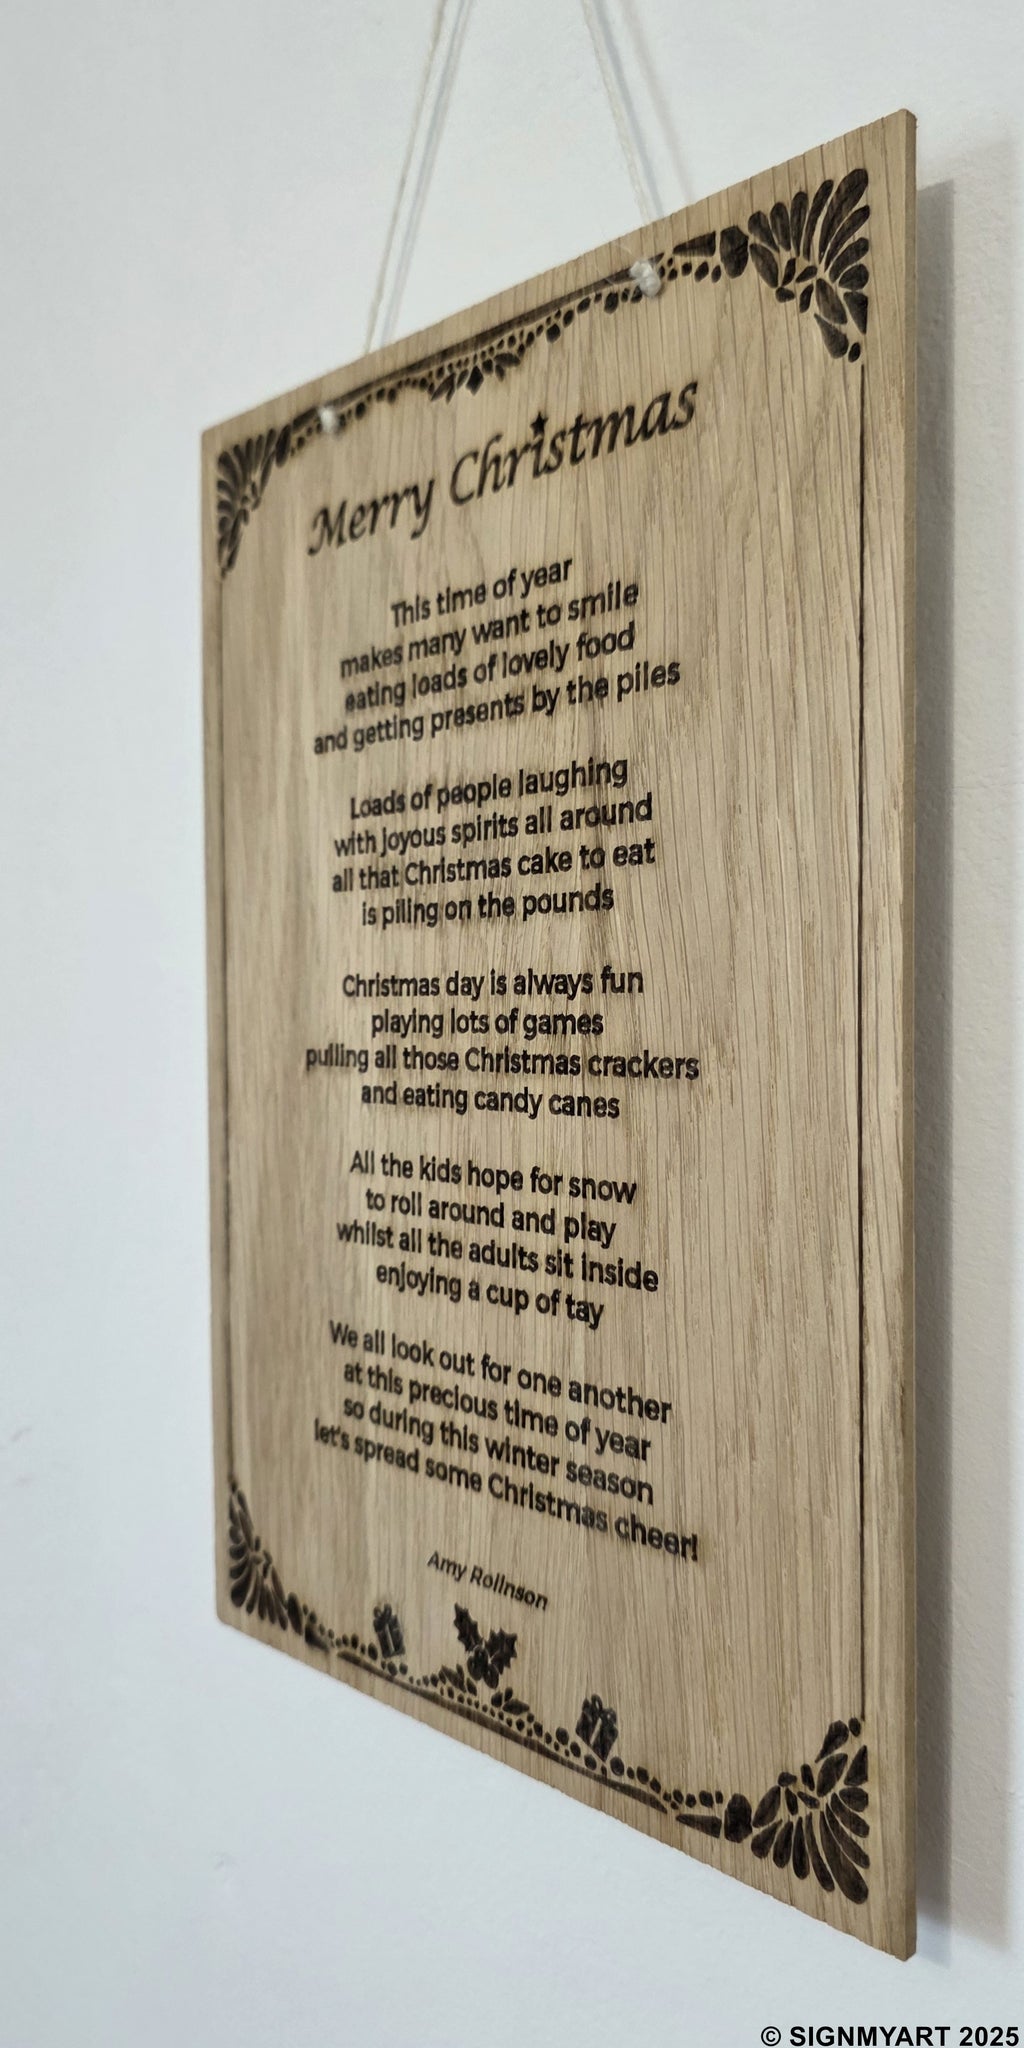 Merry Christmas
This time of year
makes many want to smile
eating loads of lovely food
and getting presents by the piles
Loads of people laughing
with joyous spirits all around
all that Christmas cake to eat
is piling on the pounds
Christmas day is always fun
playing lots of games
pulling all those Christmas crackers
and eating candy canes
All the kids hope for snow
to roll around and play
whilst all the adults sit inside
enjoying a cup of tay
We all look out for one another
at this precious time of year
so during this winter season
let's spread some Christmas cheer!
Amy Rolinson
© SIGNMYART 2025